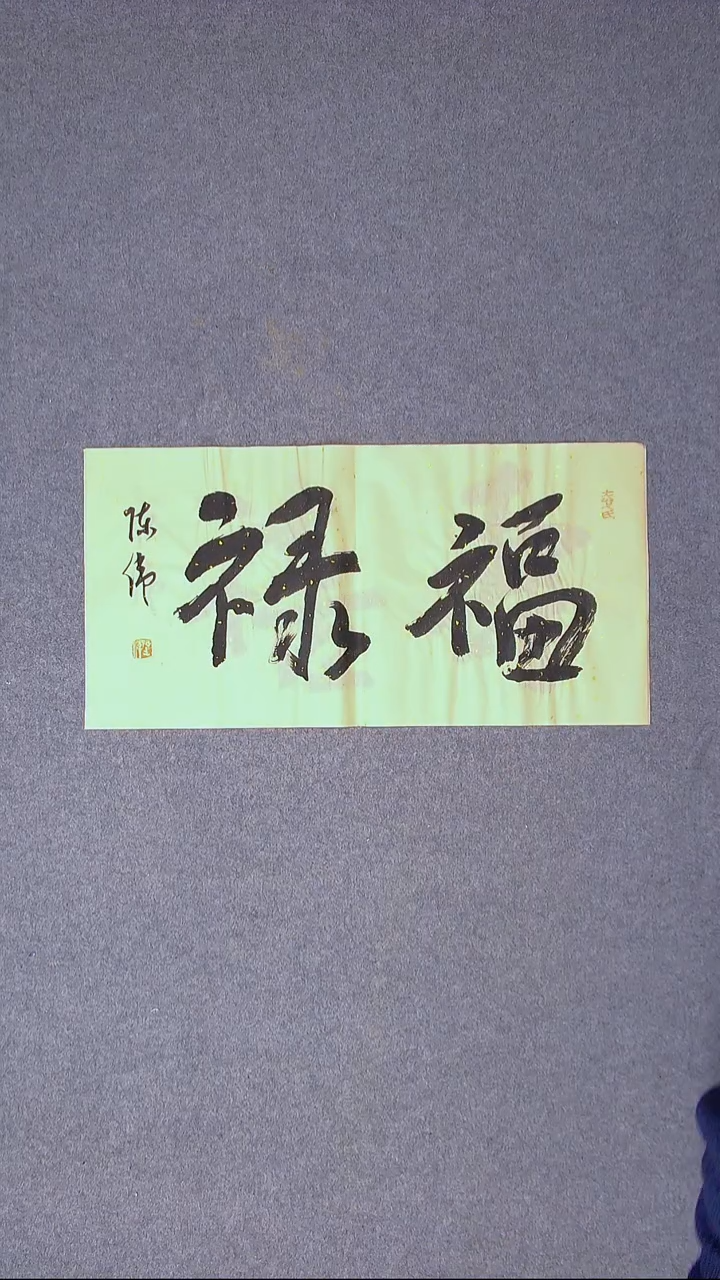 福禄
陈伟